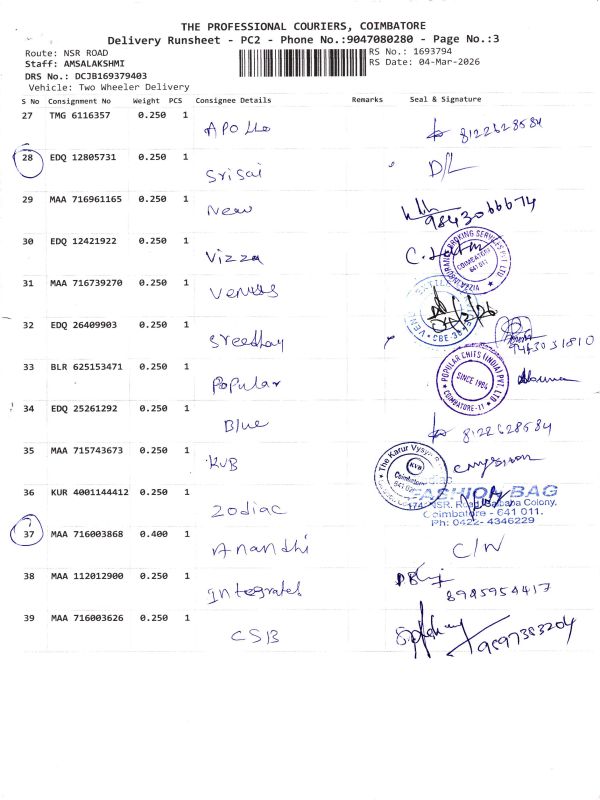 THE PROFESSIONAL COURIERS, COIMBATORE
Delivery Runsheet - PC2 - Phone No.:9047080280 - Page No.:3
Route: NSR ROAD
RS No.: 1693794
Staff: AMSALAKSHMI
RS Date: 04-Mar-2026
DRS No.: DCJB169379403
Vehicle: Two Wheeler Delivery
S No Consignment No Weight PCS Consignee Details Remarks Seal & Signature
27 TMG 6116357 0.250 1 Apollo 8122628584
28 EDQ 12805731 0.250 1 Srisai D/L
29 MAA 716961165 0.250 1 New 9843066674
30 EDQ 12421922 0.250 1 Vizza
COIMBATORE
641 011
31 MAA 716739270 0.250 1 Venus
CBE-38
32 EDQ 26409903 0.250 1 Sreedhay 9443031810
33 BLR 625153471 0.250 1 Popular
POPULAR CHITS (INDIA) PVT. LTD.
SINCE 1984
COIMBATORE-11
34 EDQ 25261292 0.250 1 Blue 8122628584
35 MAA 715743673 0.250 1 KVB
The Karur Vysya
KVB
Coimbatore
36 KUR 4001144412 0.250 1 Zodiac
FASHION BAG
174, NSR. Road, Saibaba Colony,
Coimbatore - 641 011.
Ph: 0422- 4346229
37 MAA 716003868 0.400 1 Anandhi C/N
38 MAA 112012900 0.250 1 Integrates 8925954417
39 MAA 716003626 0.250 1 CSB 9597383204